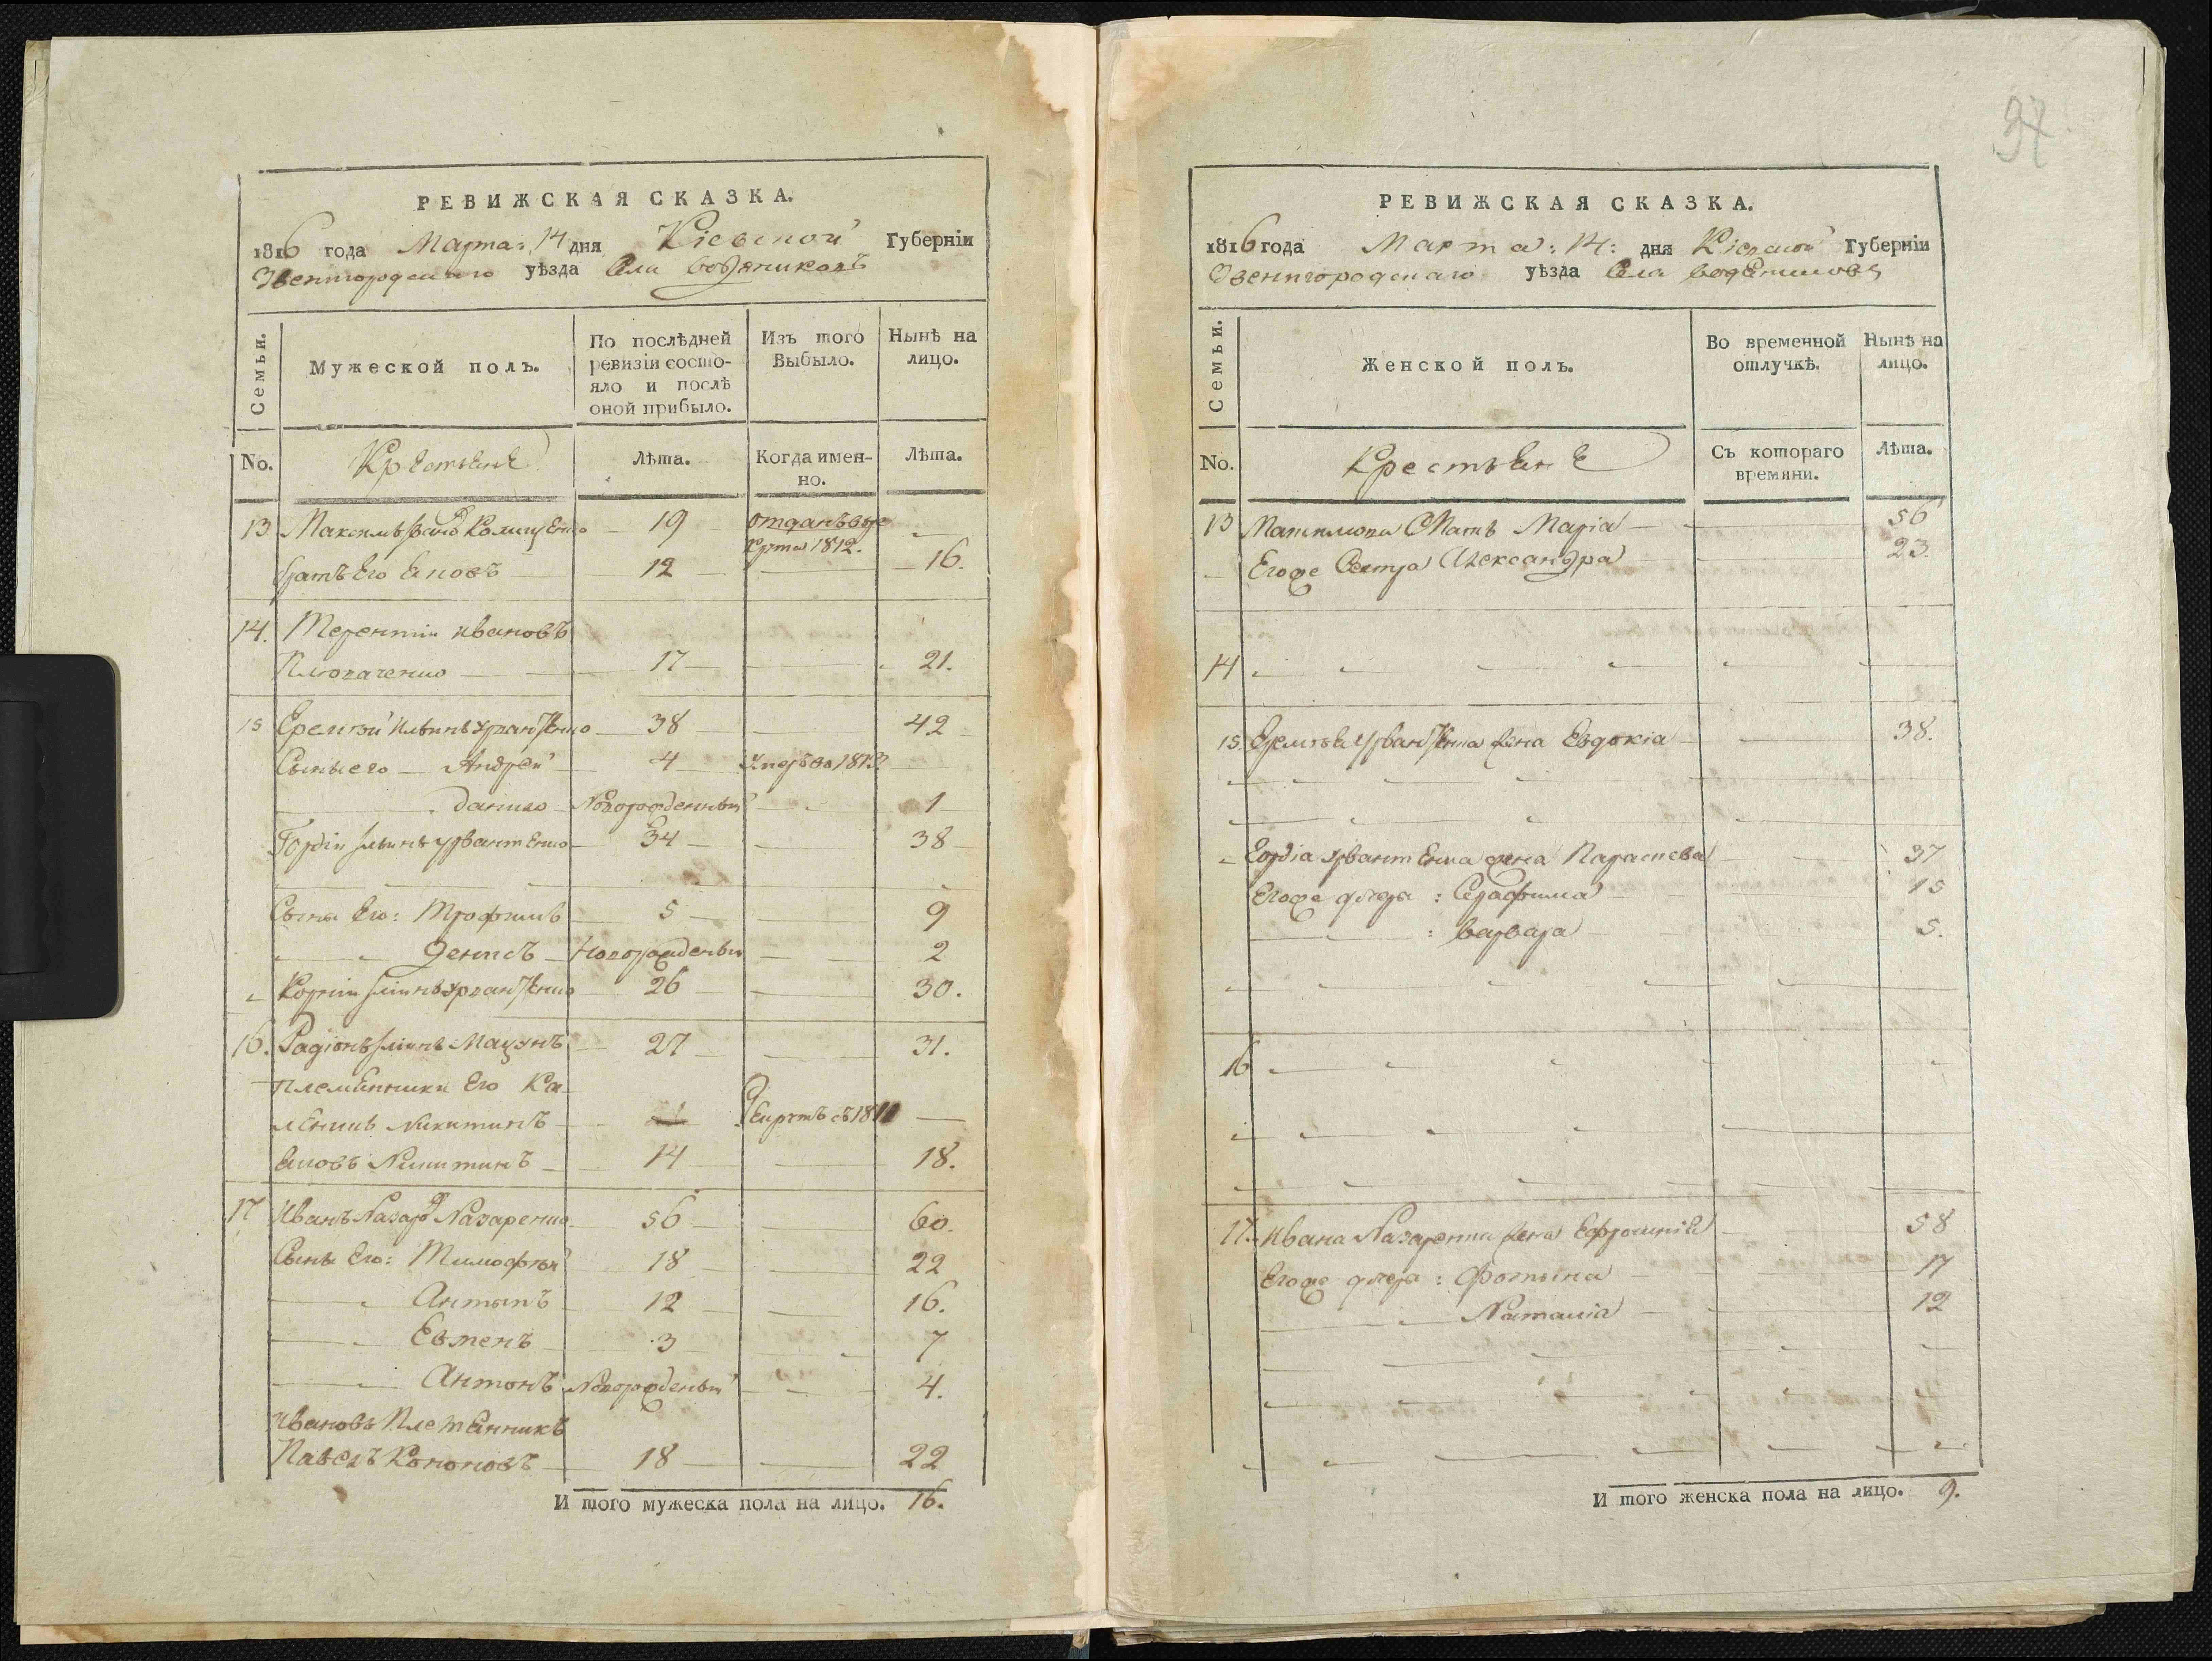 РЕВИЖСКАЯ СКАЗКА.
1816 года Марта: 14 дня Кіевской Губерніи
Звенигородскаго уѣзда Села водяниковъ
Семьи.
Мужеской полъ.
По послѣдней ревизіи состояло и послѣ оной прибыло.
Изъ того Выбыло.
Нынѣ на лицо.
No.
Крестьяне
Лѣта.
Когда именно.
Лѣта.
13 Максимъ 19 отданъ вре
крта 1812.
братъ Его Яковъ 12 16.
14. Терентіи Ивановъ
17 21.
15 Еремѣй Ильинъ 38 42
Сынъ его Андрей 4 умеръ въ 1813.
данило Новорожденный 1
Гордіи Ильинъ 34 38
Сыны Его: Трофимъ 5 9
денисъ Новорожденый 2
Корніи 26 30.
16. Радіонъ Мацунъ 27 31.
племянники Его Ка-
Никитинъ Рекрутъ съ 1811
Яковъ Никитинъ 14 18.
17 Иванъ Назаро Назаренко 56 60.
Сынъ Его: Тимофѣй 18 22
Антипъ 12 16.
Евменъ 3 7
Антонъ Новорожденый 4.
Ивановъ Племянникъ
Павелъ Кононовъ 18 22
И того мужеска пола на лицо. 16.
37
РЕВИЖСКАЯ СКАЗКА.
1816 года Марта: 14: дня Кіевской Губерніи
Звенигородскаго уѣзда Села водяниковъ
Семьи.
Женской полъ.
Во временной отлучкѣ.
Нынѣ на лицо.
No.
Крестьяне
Съ котораго времяни.
Лѣта.
13 Мать Марія 56
Егоже Сестра Александра 23.
14
15. жена Евдокія 38.
Гордіа жена Параскева 37
Егоже дочери: Серафима 15
: варвара 5.
16
17. Ивана Назаренка жена Ефросинія 58
Егоже дочери: Фотына 17
Наталіа 12
И того женска пола на лицо. 9.